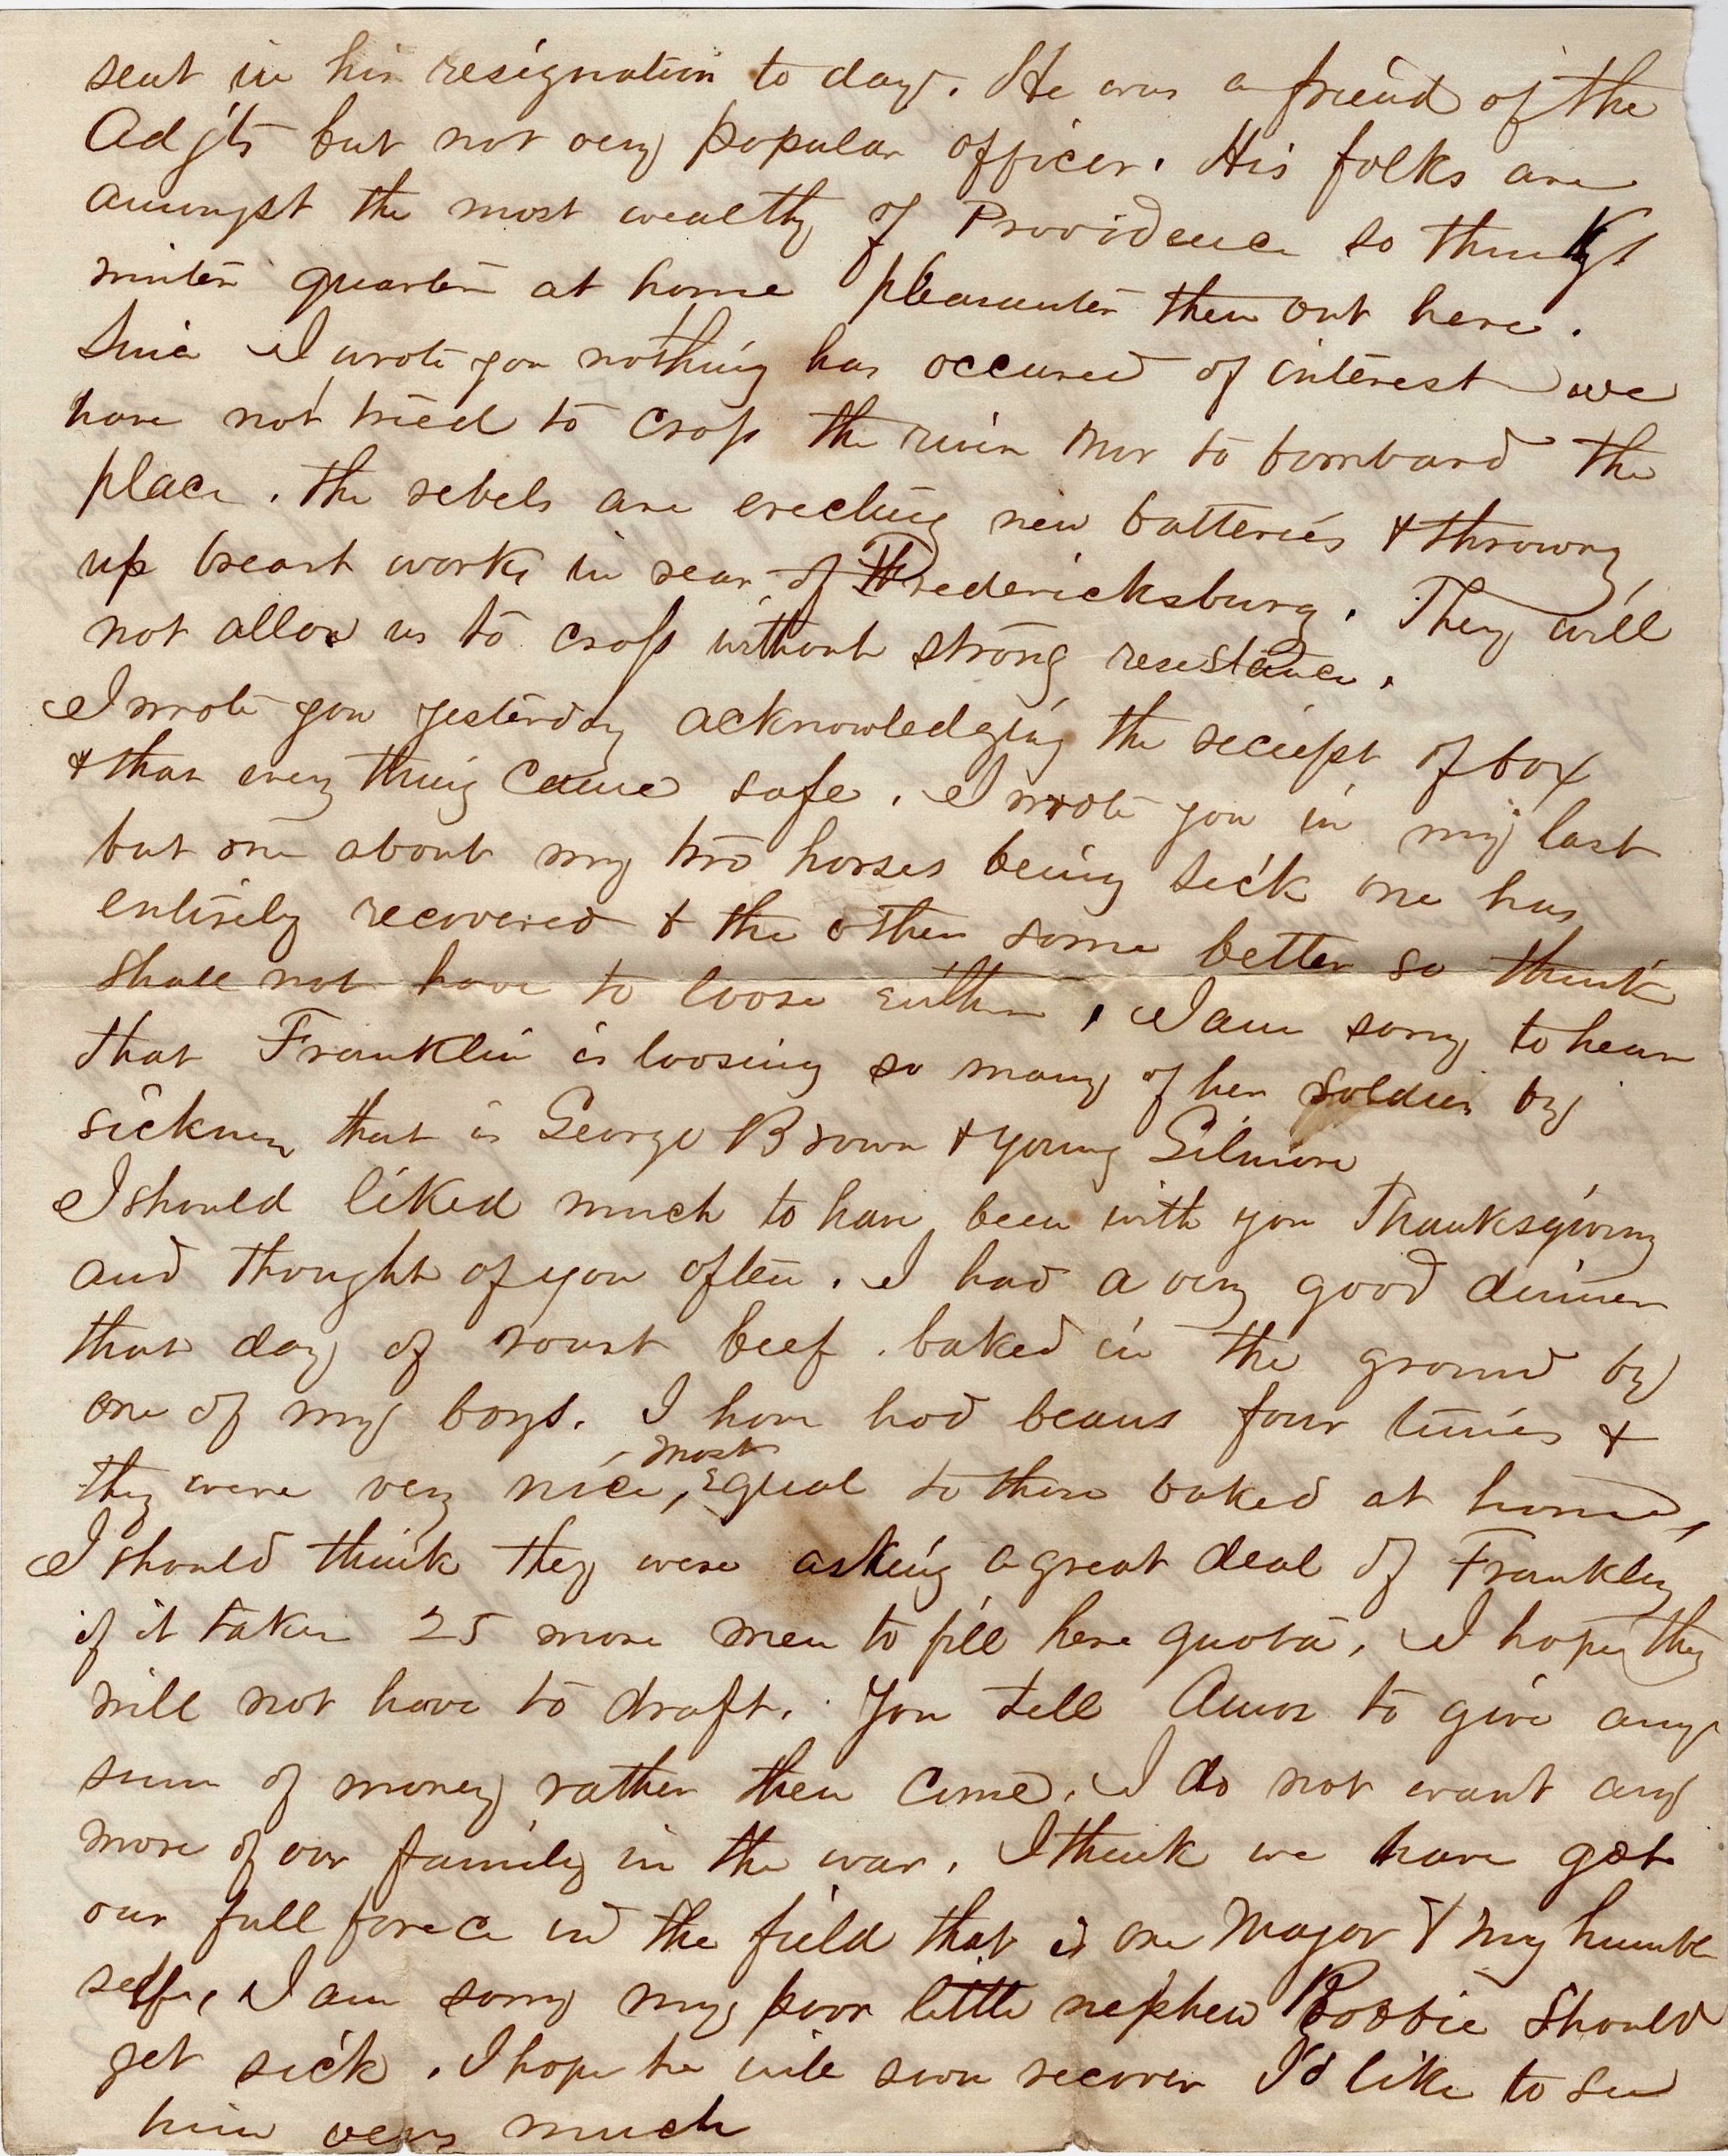 sent in his resignation to day. He was a friend of the
Adjts but not very popular officer. His folks are
amongst the most wealthy of Providence so thinks
winter quarters at home pleasanter then out here.
Since I wrote you nothing has occured of interest we
have not tried to cross the river nor to bombard the
place. The rebels are erecting new batteries & throwing
up breast works in rear of Fredericksburg. They will
not allow us to cross without strong resistance.
I wrote you yesterday acknowledging the reciept of box
& that every thing came safe. I wrote you in my last
but one about my two horses being sick one has
entirely recovered & the other some better so think
shall not have to loose either, I am sorry to hear
that Franklin is loosing so many of her soldiers by
sickness that is George Brown & young Gilmore
I should liked much to have been with you Thanksgiving
and thought of you often. I had a very good dinner
that day of roast beef baked in the ground by
one of my boys. I have had beans four times &
they were very nice, most equal to those baked at home,
I should think they were asking a great deal of Franklin
if it takes 25 more men to fill here quota. I hope they
will not have to draft. You tell Amos to give any
sum of money rather then come. I do not want any
more of our family in the war. I think we have got
our full force in the field that is one Major & my humble
self. I am sorry my poor little nephew Bobbie should
get sick. I hope he will soon recover I'd like to see
him very much